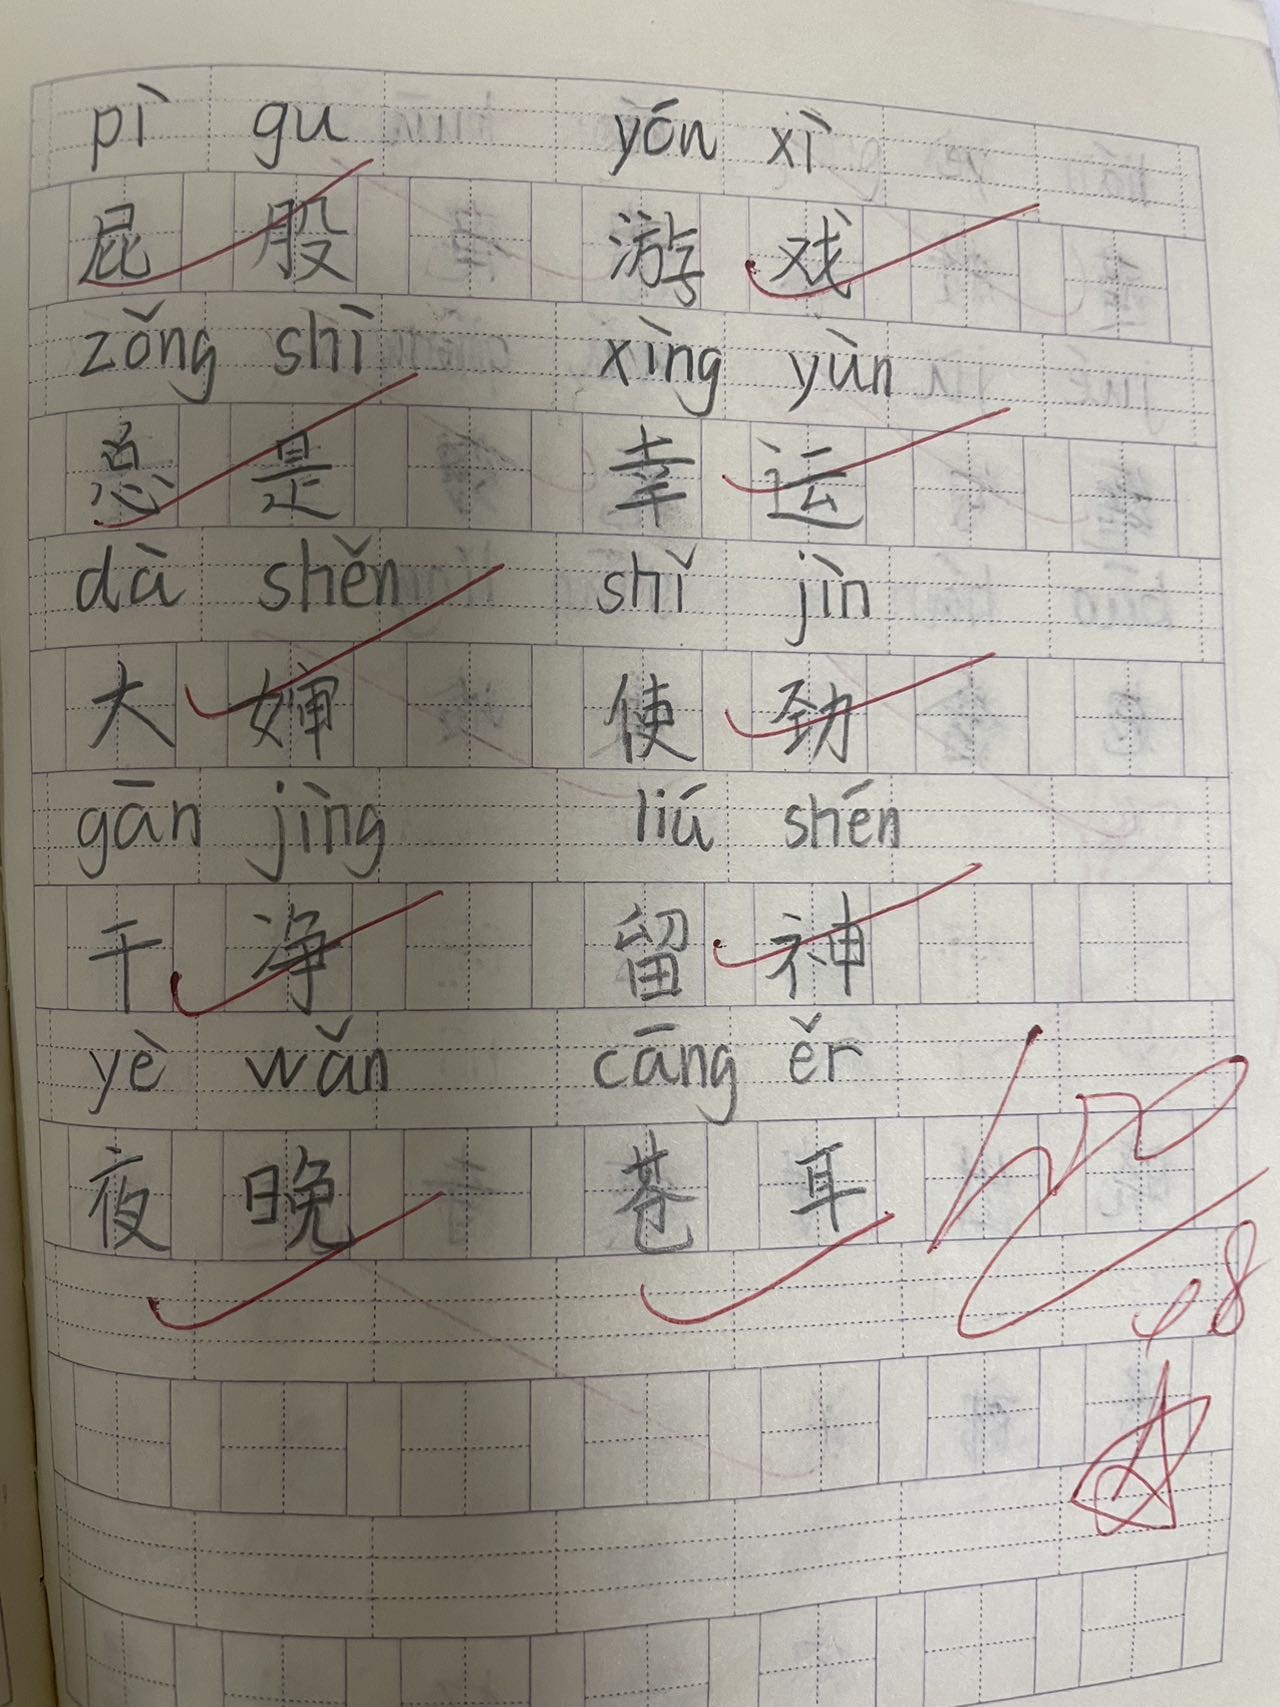 pì gu yóu xì
屁股 游戏
zǒng shì xìng yùn
总是 幸运
dà shěn shǐ jìn
大婶 使劲
gān jìng liú shén
干净 留神
yè wǎn cāng ěr
夜晚 苍耳
100